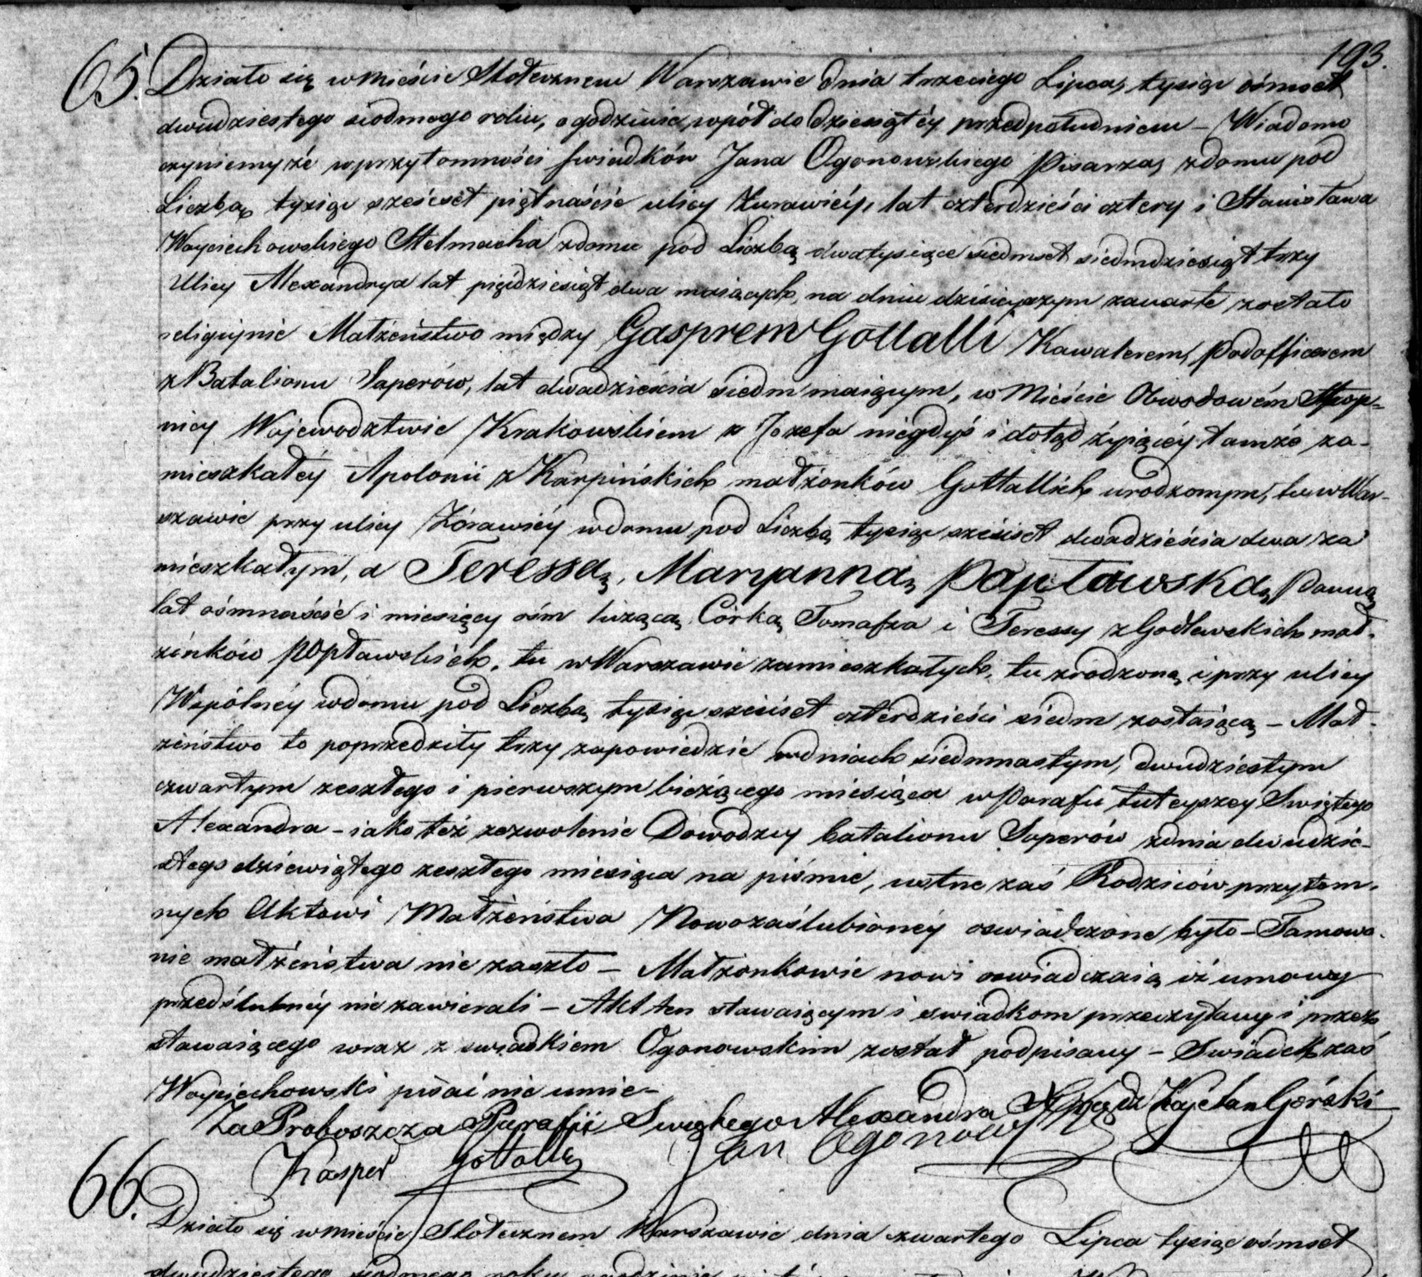 193.
65. Działo się w Mieście Stołecznem Warszawie dnia trzeciego Lipca, tysiąc ośmset
dwudziestego siodmego roku, o godzinie wpół do dziesiątéy przedpołudniem – Wiadomo
czyniemy że w przytomności świadków Jana Ogonowskiego Pisarza, z domu pod
Liczbą tysiąc sześcset piętnaście ulicy Żurawiéy, lat czterdzieści cztery i Stanisława
Woyciechowskiego Stelmacha z domu pod Liczbą dwatysiące siedmset siedmdziesiąt trzy
Ulicy Alexandrya lat pięćdziesiąt dwa maiących, na dniu dzisieyszym zawarte zostało
religiynie Małżeństwo między Gasprem Gottalli Kawalerem, podofficerem
z Batalionu Saperów, lat dwadzieścia siedm maiącym, w Mieście Obwodowém Stop-
nicy Województwie Krakowskiem z Jozefa niegdyś i dotąd żyiącéy tamże za-
mieszkałéy Apolonii z Karpińskich małżonków Gottallich urodzonym, tu w War-
szawie przy ulicy Żórawiéy w domu pod Liczbą tysiąc sześcset dwadzieścia dwa za
mieszkałym, a Teressą, Maryanną Popławską, Panną
lat ośmnaście i miesięcy ośm liczącą, Córką Tomasza i Teressy z Godlewskich mał-
żonków Popławskich, tu w Warszawie zamieszkałych, tu zrodzoną i przy ulicy
Wspólnéy w domu pod Liczbą tysiąc sześcset czterdzieści siedm zostaiącą – Mał-
żeństwo to poprzedziły trzy zapowiedzie w dniach siedmnastym, dwudziestym
czwartym zeszłego i pierwszym bieżącego miesiąca w Parafii tuteyszey Świętego
Alexandra – iako też zezwolenie Dowodzcy batalionu Saperów z dnia dwudzie-
stego dziewiątego zeszłego miesiąca na piśmie, ustne zaś Rodziców przytom-
nych Aktowi Małżeństwa Nowozaślubionéy oświadczone było – Tamowa-
nie małżeństwa nie zaszło – Małżonkowie nowi oswiadczaią iż umowy
przedślubnéy nie zawierali – Akt ten stawaiącym i świadkom przeczytany i przez
stawaiącego wraz z swiadkiem Ogonowskim został podpisany – Swiadek zaś
Woyciechowski pisać nie umie –
Za Proboszcza Parafii Swiętego Alexandra Xiądz Kajetan Górski
Kasper Gottalli Jan Ogonows
66. Działo się w mieście Stołecznem Warszawie dnia czwartego Lipca tysiąc ośmset
dwudziestego siodmego roku